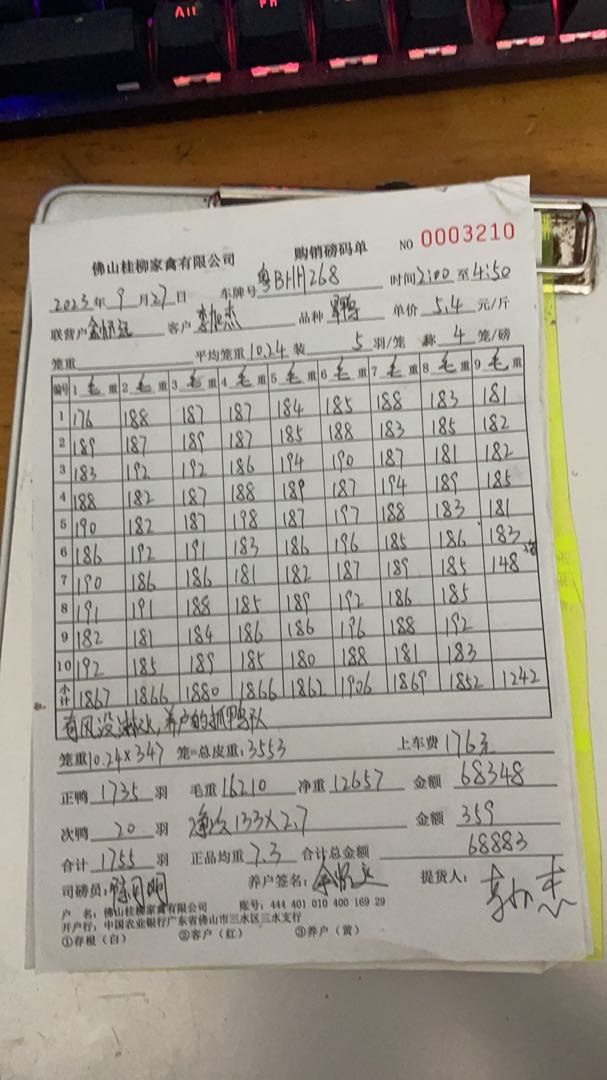 Alt
佛山桂柳家禽有限公司 购销磅码单 NO 0003210
2023年9月27日 车牌号 粤BHH268 时间2:00至4:50
联营户 客户 李旭杰 品种 单价 5.4 元/斤
笼重 平均笼重10.24 装 5 羽/笼 称 4 笼/磅
编号 1 毛 重 2 毛 重 3 毛 重 4 毛 重 5 毛 重 6 毛 重 7 毛 重 8 毛 重 9 毛 重
1 176 188 187 187 184 185 188 183 181
2 189 187 189 187 185 188 183 185 182
3 183 192 192 186 194 190 187 181 182
4 188 182 187 188 189 187 194 189 185
5 190 182 187 198 187 197 188 183 181
6 186 192 191 183 186 196 185 186 183
7 190 186 186 181 182 187 189 185 148
8 191 191 188 185 189 192 186 185
9 182 181 184 186 186 196 188 192
10 192 185 189 185 180 188 181 183
小计 1867 1866 1880 1866 1862 1906 1869 1852 1242
有风没淋水,养户的抓鸭队
笼重10.24×347 笼=总皮重:3553 上车费 176元
正鸭 1735 羽 毛重16210 净重 12657 金额 68348
次鸭 20 羽 净次133×2.7 金额 359
合计 1755 羽 正品均重 7.3 合计总金额 68883
司磅员: 养户签名: 提货人: 李旭杰
户 名:佛山桂柳家禽有限公司 账号:444 401 010 400 169 29
开户行:中国农业银行广东省佛山市三水区三水支行
①存根(白) ②客户(红) ③养户(黄)